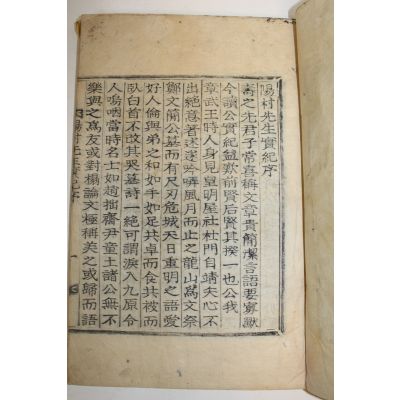 陽村先生實紀序
嵜之先君子常喜稱文章貴簡潔言語要寡默
今讀公實紀益歎前賢后賢其揆一也公我
章武王時人身見皇明屋社杜門自靖夫心不
出絶意著述逐吟嘯風月而止之龍山爲文祭
鄭文簡公墓而有尺刃危城天日重明之語愛
好人倫與弟之和如手如足共卓而食共枝而
臥白首不改其哭墓詩一絶可謂淚入九原令
人嗚咽當時名士如趙拙齋尹童土諸公無不
樂與之爲友或對榻論文極稱美之或歸而語
陽村先生實紀序
一